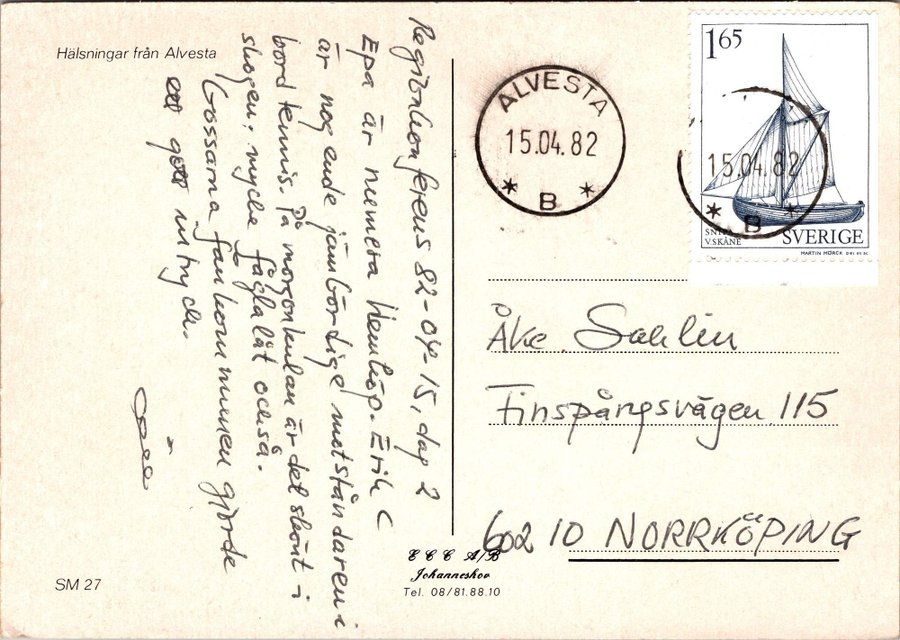 Hälsningar från Alvesta
Regionkonferens 82-04-15, dag 2
Epa är numera Hemköp. Erik C
är nog ende jämbördige motståndaren i
bordtennis. På morgonkulan är det skönt i
skogen; mycke fågellåt också.
Gossarna fankommunen gjorde
ett gott intryck.
SM 27
C C C A/B
Johanneshov
Tel. 08/81.88.10
ALVESTA
15.04.82
B
165
15.04.82
B
V.SKÅNE
SVERIGE
MARTIN MÖRCK
Åke Sahlin
Finspångsvägen 115
602 10 NORRKÖPING